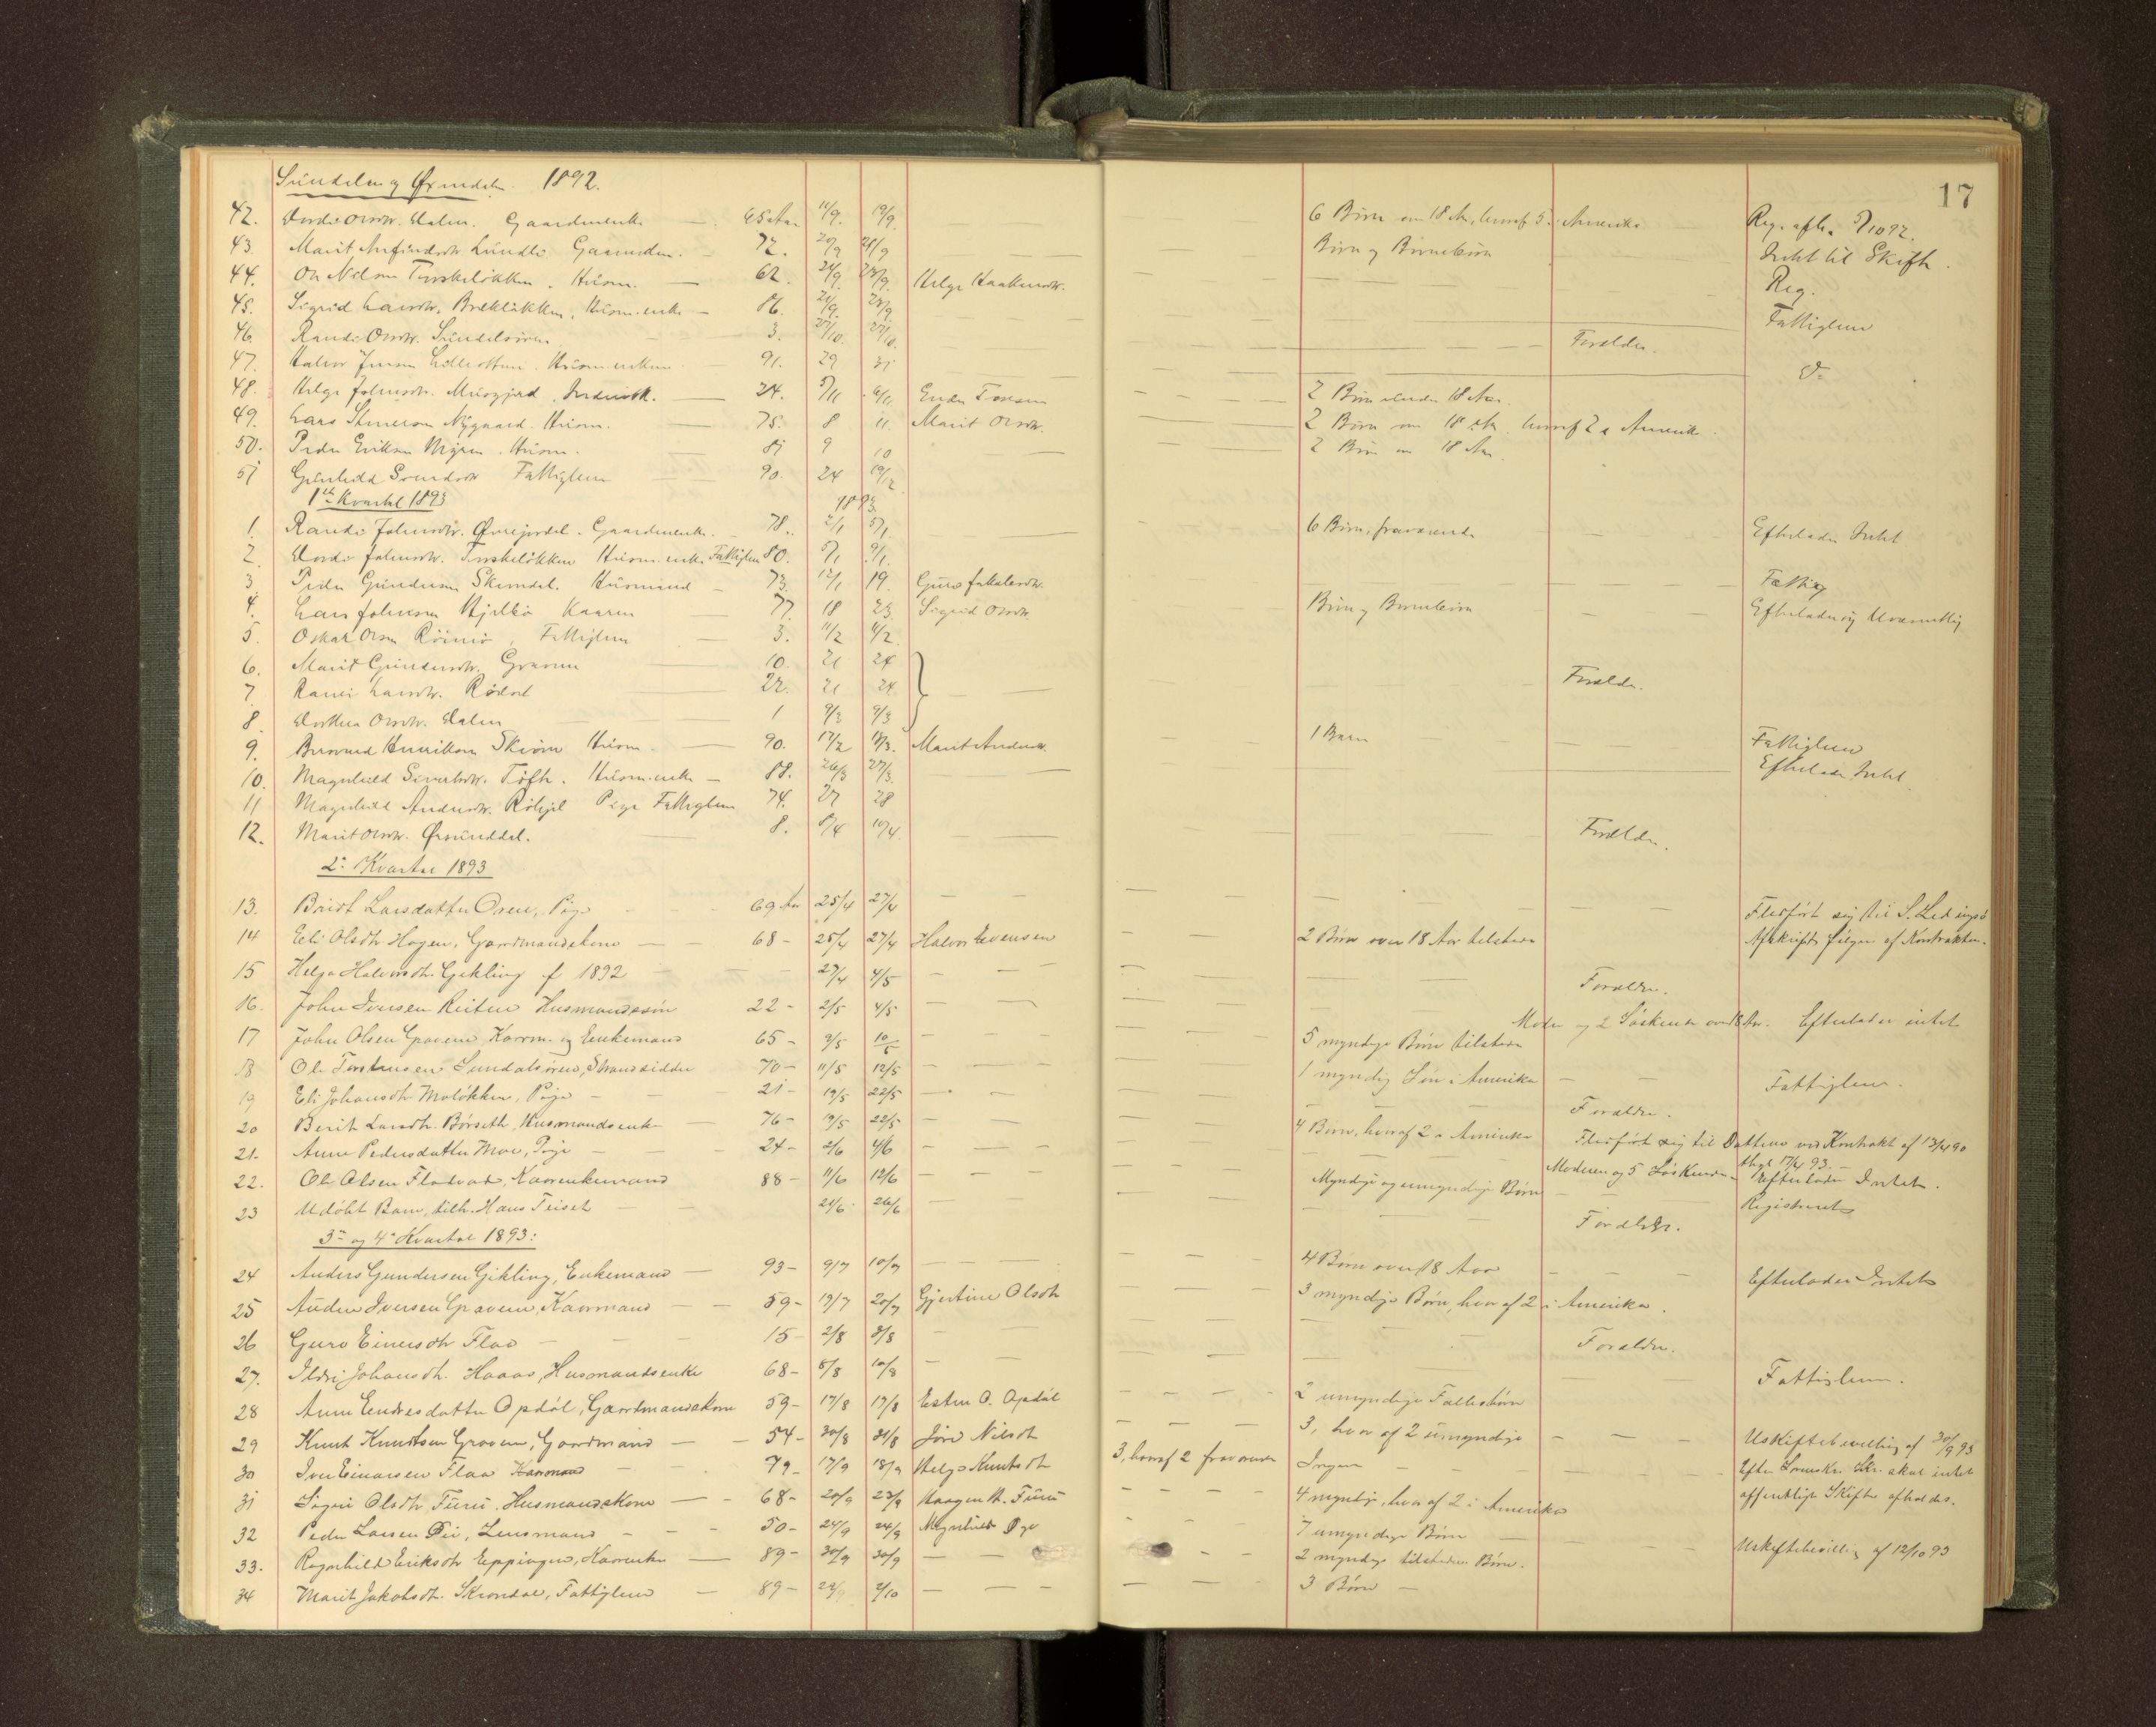 17
Sundalen og Øxendalen. 1892.
42. Dordi Olsdtr. Dalen. Gaardmenke 65 Aar 11/9. 19/9. — 6 Børn om 18 Ar, hvoraf 5 i Amerika — Reg. afh. 5/10 92.
43. Marit Arfindsdtr Lundli Gaardm. — 72. 20/9 21/9 — Børn og Børnebørn Intet til Skifte.
44. Ole Nilsen Torskeløkken. Husm. — 62. 24/9. 28/9. Helge Haakensdtr. — Reg.
45. Sigrid Larsdtr. Brekløkken, Husm.enke — 86. 21/9. 23/9. — Fattiglem
46. Randi Olsdtr. Sundalsøren 3. 27/10. 27/10. — Forældre.
47. Halvor Jensen Husm.enkem 91. 29 31 — Do
48. Helge Johnsdtr. Musgjerd. Inderstk. — 24. 5/11 6/11 Endre Toresen — 2 Børn under 18 Aar.
49. Lars Nygaard. Husm. — 75. 8 11 Marit Olsdtr. — 2 Børn om 18 Ar. hvoraf 2 i Amerik.
50. Peder Eriksen Husm. — 81 9 10 — 2 Børn om 18 Aar.
51 Gunhild Svendsdtr Fattiglem — 90. 24 19/12
1ste Kvartal 1893 1893
1. Randi Johnsdtr. Øvrejordel. Gaardmenke. — 78. 2/1 5/1 — 6 Børn, fraværende — Efterlader Intet
2. Dordi Johnsdtr. Torskeløkken Husm.enke Fattiglem 80. 5/1 9/1.
3. Peder Gundersen Skrondal. Husmand — 73. 12/1 19. Guro Jakobsdtr. — Fattig
4. Lars Johnsen Hjelbø Kaarm — 77. 18 23 Sigrid Olsdtr. Børn og Børnebørn — Efterladenskab Uvæsentlig
5. Oskar Olsen Røimo, Fattiglem — 3. 11/2 11/2
6. Marit Gundersdtr. Gravem — 10. 21 24
7. Larsdtr. Rødal — 22. 21 24. — Forældr.
8. Dorthea Olsdtr. Dalen 1 9/3 9/3
9. Henriksen Skrøm Husm. — 90. 12/2 18/3. Marit Andersdtr. — 1 Barn — Fattiglem
10. Magnhild Sivertsdtr. Tofte. Husm.enke — 88. 26/3 27/3. — Efterlader Intet.
11 Magnhild Andersdtr. Pige Fattiglem 74. 27 28
12. Marit Olsdtr. Øxenddal. 8. 8/4 10/4. — Forældr.
2det Kvartal 1893
13. Bridt Larsdatter Oren, Pige — 69 Aar 25/4 27/4 — Fledført sig til S. Ledingsø
14 Eli Olsdtr Hagen, Gaardmandskone — 68 — 25/4 27/4 Halvor Evensen 2 Børn over 18 Aar tilstede Afskrift følger af Kontrakten.
15 Helga Halvorsdtr. Gikling f 1892 — 27/4 4/5 — Forældre.
16. John Iversen Reiten Husmandssøn 22 — 2/5 4/5 — Moder og 2 Søskende over 18 Ar. Efterlader intet
17 John Olsen Gravem, Kaarm. og Enkemand 65 — 9/5 10/5 5 myndige Børn tilstede
18 Ole Torstensen Sundalsøren, Strandsidder 70 — 11/5 12/5 — 1 myndig Søn i Amerika — Fattiglem.
19 Eli Johansdtr Moløkken, Pige — 21 — 19/5 22/5 — Forældre.
20 Berit Larsdtr. Børseth, Husmandsenke — 76 — 19/5 22/5 — 4 Børn, hvoraf 2 i Amerika Fledført sig til Datteren ved Kontrakt af 13/4 90 thgl 17/4 93.
21. Anne Pedersdatter Moe, Pige — 24 — 2/6 4/6 — Moderen og 5 Søskende — Efterlader Intet.
22. Ole Olsen Flatvad, Kaarenkemand 88 — 11/6 12/6 — Myndige og umyndige Børn — Registreret
23 Udøbt Barn, tilh. Hans Treset — 21/6. 26/6 — Forældre.
3die og 4de Kvartal 1893:
24 Anders Gundersen Gikling, Enkemand — 93 — 9/7 10/7 — 4 Børn over 18 Aar — Efterlader Intet
25 Anders Iversen Gravem, Kaarmand — 59 — 19/7 20/7 Gjertine Olsdtr — 3 myndige Børn, hvoraf 2 i Amerika.
26 Guro Einersdtr Flaa — 15 — 2/8 3/8 — Forældre.
27. Ildri Johansdtr. Haaas, Husmandsenke 68 — 8/8 10/8 — Fattiglem.
28 Anne Endresdatter Opdøl, Gaardmandskone 59 — 17/8 17/8 Esten O. Opdøl — 2 umyndige Fællesbørn
29 Knut Knudtsen Gravem, Gaardmand — 54 — 30/8 31/8 Jøre Nilsdtr — 3, hvoraf 2 umyndige — Uskiftebevilling af 30/9 93
30 Iver Einarsen Flaa Kaarmand — 79 — 17/9 18/9 Helge Knutsdtr 3, hvoraf 2 fraværende Ingen — Efter Lensm. Skr. skal intet
31 Sigri Olsdtr Furu. Husmandskone — 68 — 20/9 23/9 Haagen H. Furu — 4 myndige, hvoraf 2 i Amerika offentligt Skifte afholdes.
32 Peder Larsen Øie, Lensmand — 50 — 24/9 24/9 Magnhild Øye — 7 umyndige Børn — Uskiftebevilling af 12/10 93
33. Ragnhild Eriksdtr Eppingen, Kaarenke — 89 — 30/9 30/9 — 2 myndige tilstedeværende Børn.
34 Marit Jakobsdtr. Skrondal, Fattiglem — 89 — 22/9 2/10 — 3 Børn —